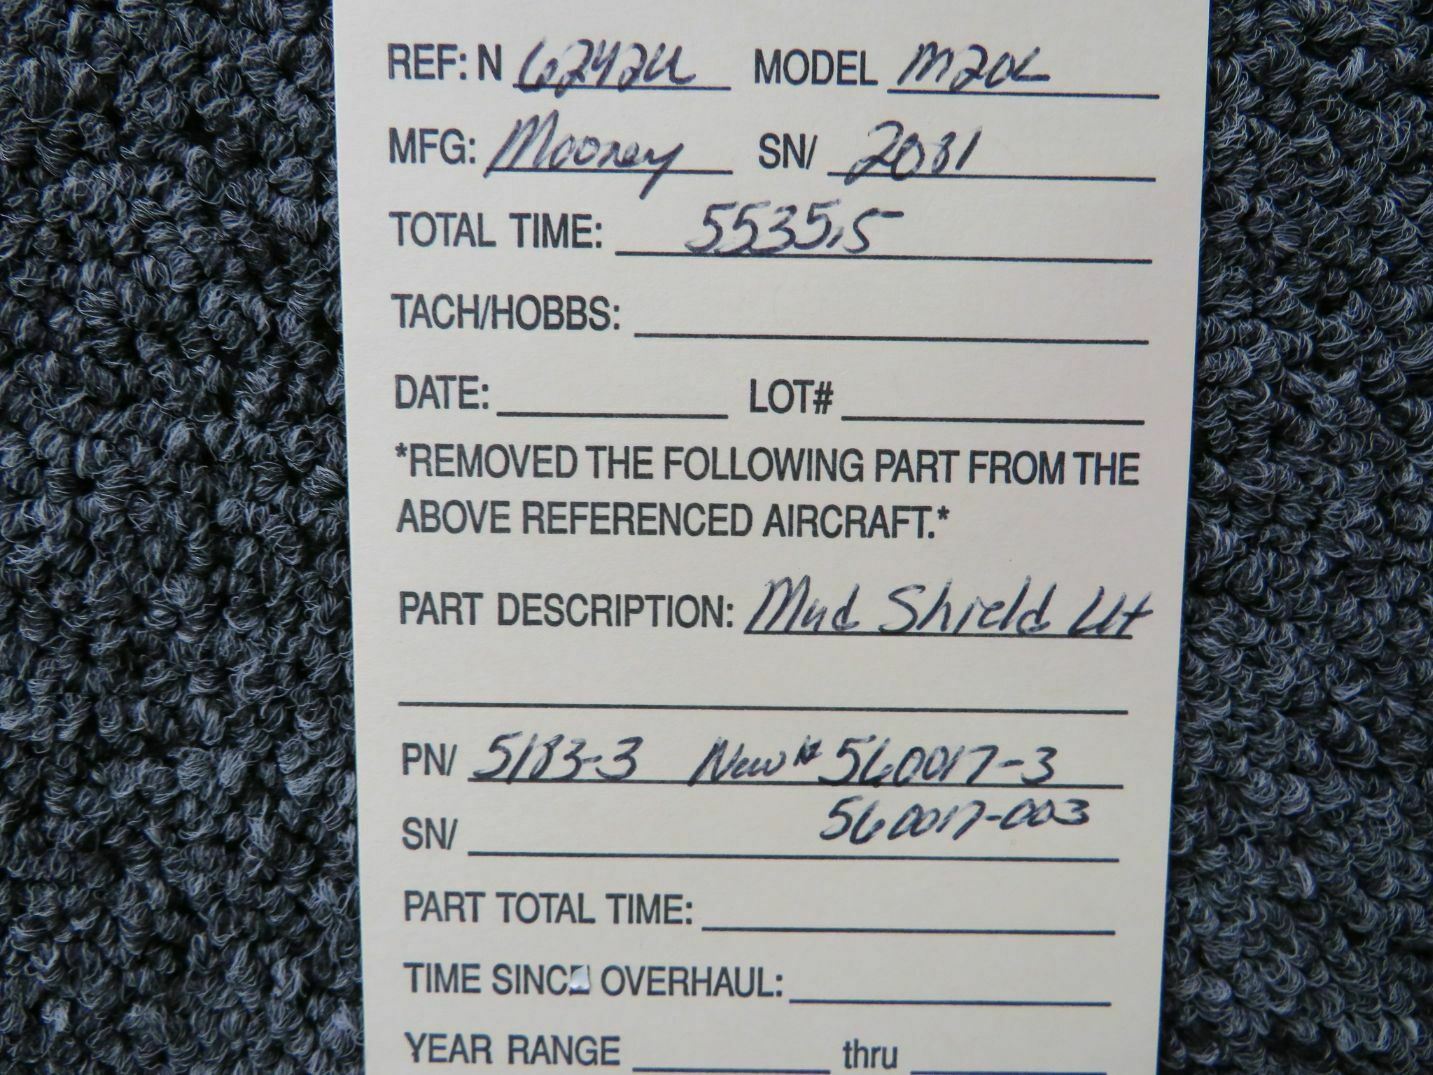 REF: N 6242U MODEL M20C
MFG: Mooney SN/ 2081
TOTAL TIME: 5535.5
TACH/HOBBS:
DATE: LOT#
*REMOVED THE FOLLOWING PART FROM THE
ABOVE REFERENCED AIRCRAFT.*
PART DESCRIPTION: Mud Shield
PN/ 5183-3 New# 560017-3
560017-003
SN/
PART TOTAL TIME:
TIME SINCE OVERHAUL:
YEAR RANGE thru